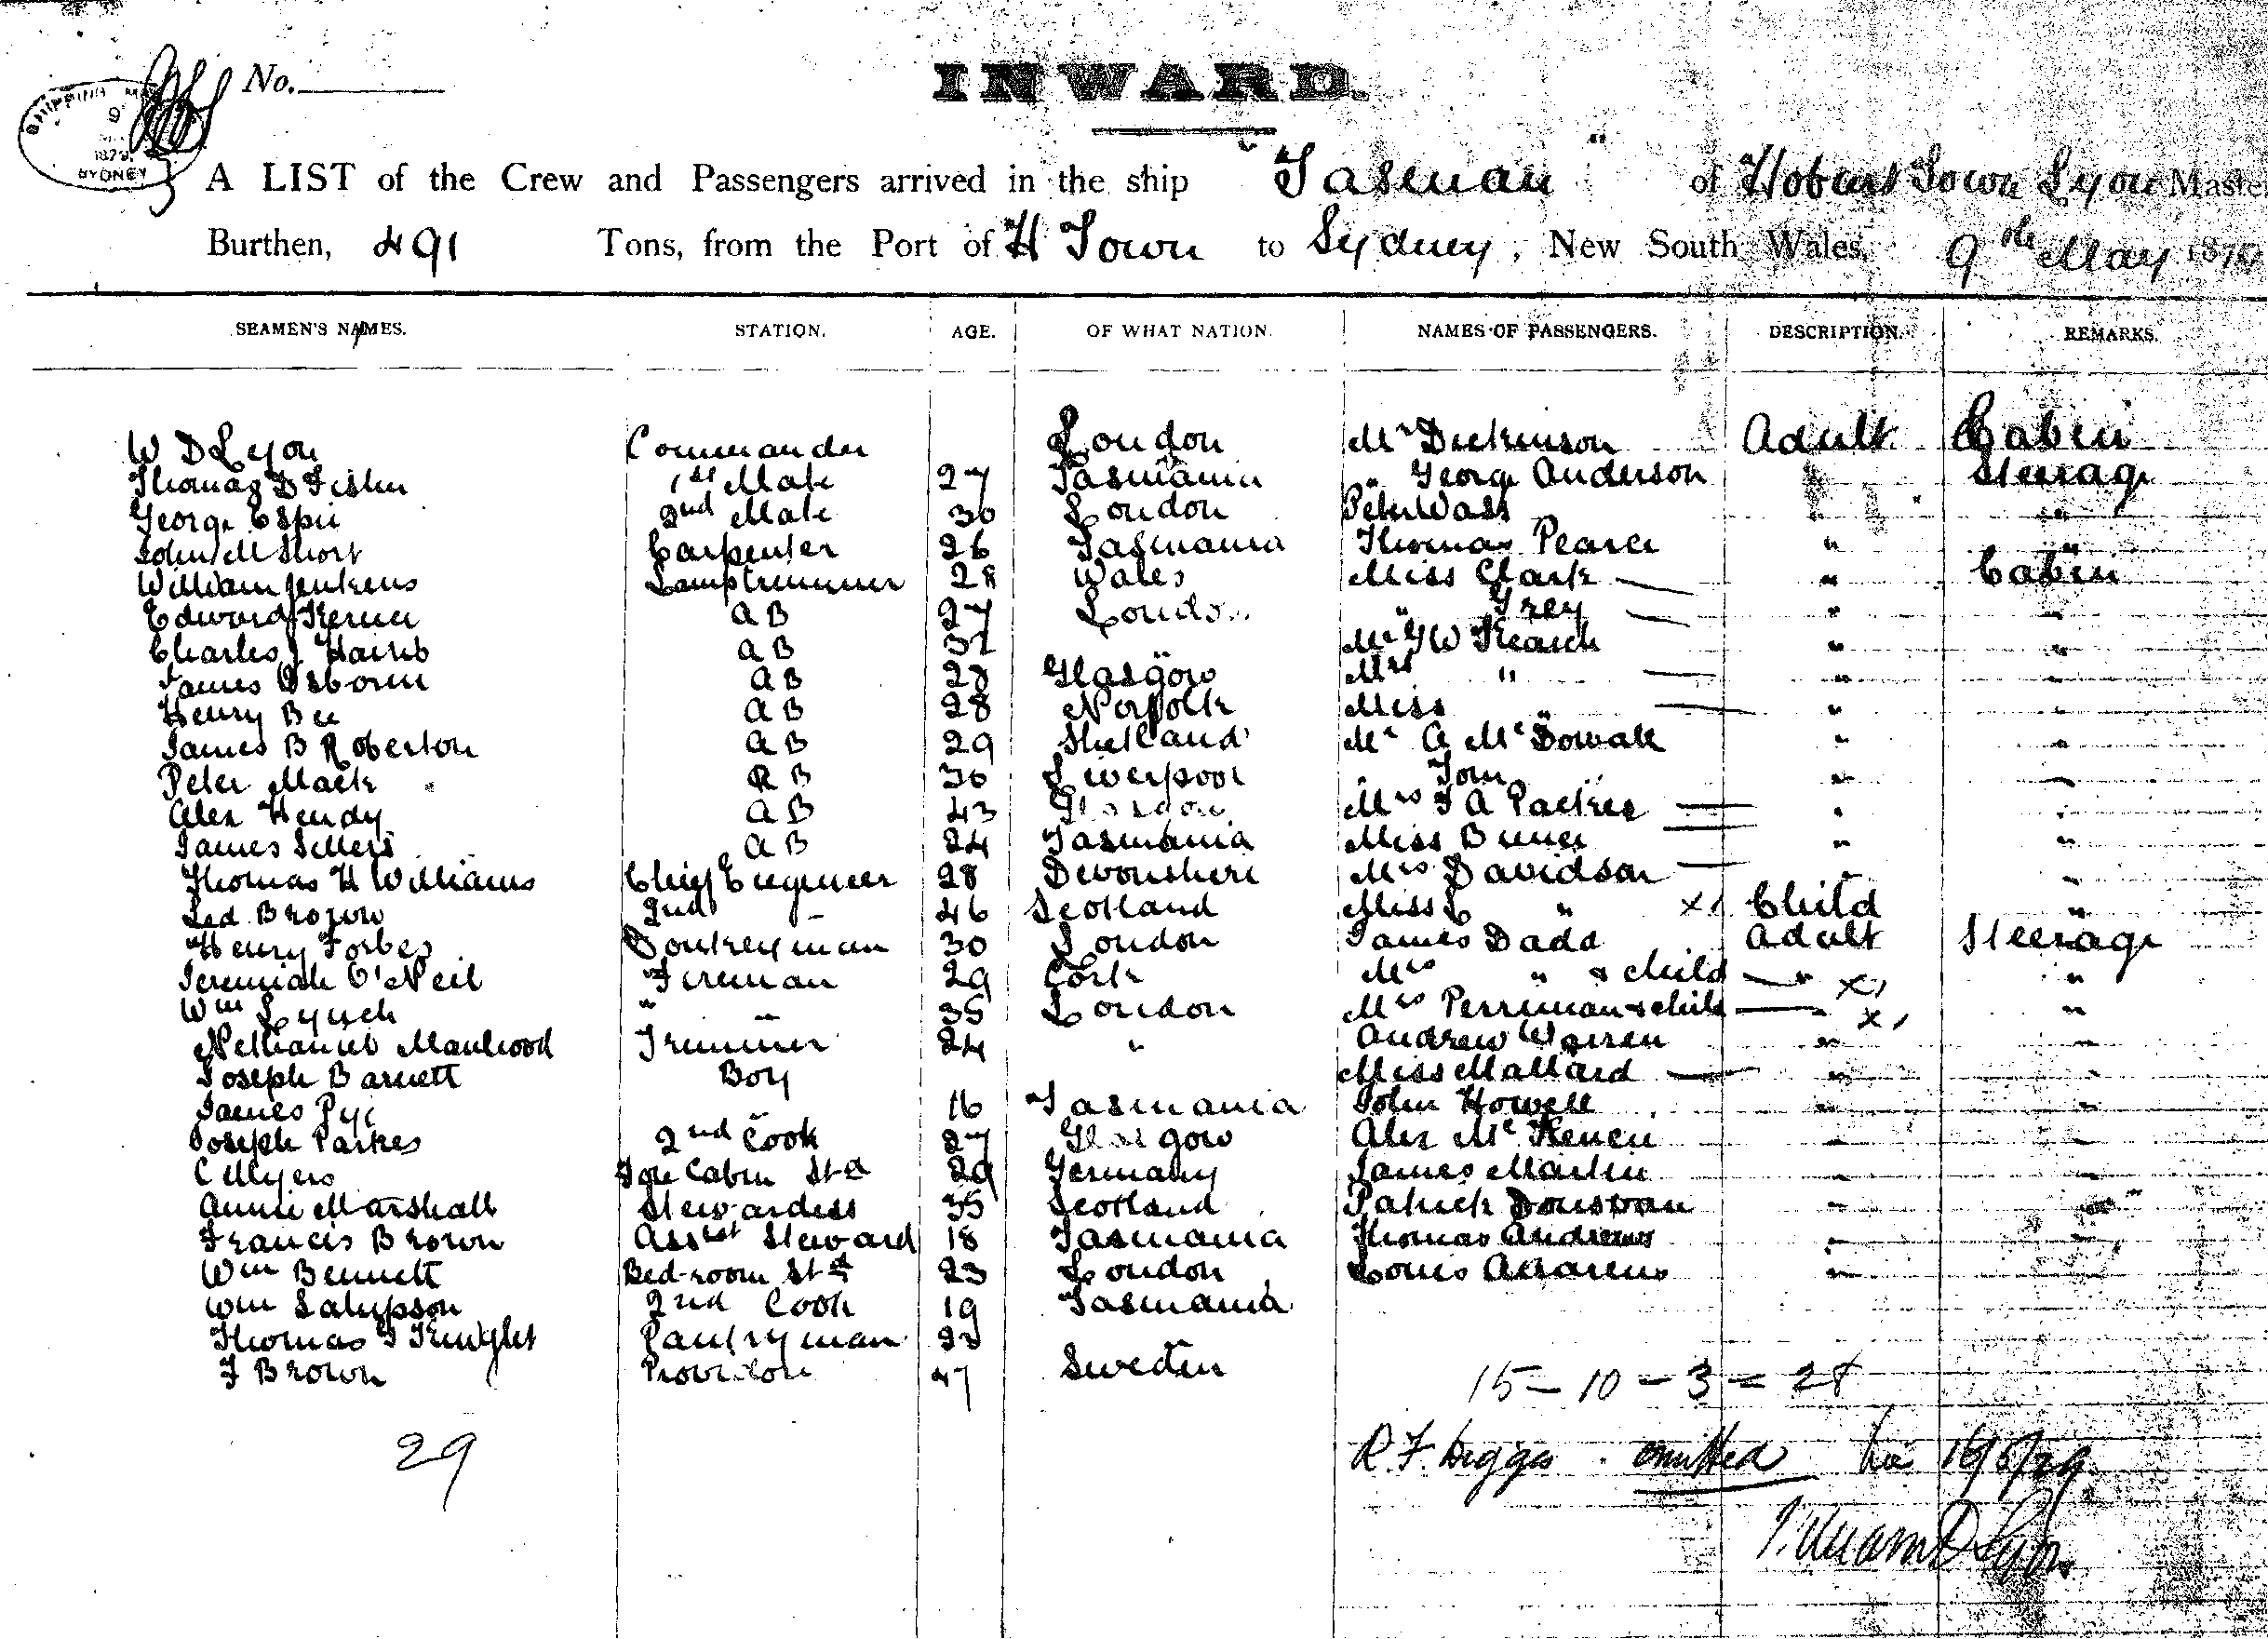 No.
INWARD.
SHIPPING MAS
9
1879
SYDNEY
A LIST of the Crew and Passengers arrived in the ship "Tasman" of Hobart Town Lyon Master
Burthen, 491 Tons, from the Port of H Town to Sydney, New South Wales, 9th May 1879
SEAMEN'S NAMES. STATION. AGE. OF WHAT NATION. NAMES OF PASSENGERS. DESCRIPTION. REMARKS.
W D Lyon Commander London Mr Dickinson Adult Cabin
Thomas D Fisher 1st Mate 27 Tasmania " George Anderson " Steerage
George Espie 2nd Mate 30 London Peter Wass " "
John M Short Carpenter 26 Tasmania Thomas Pearce " "
William Jenkens Lamptrimmer 28 Wales Miss Clark " Cabin
Edward A B 27 London " Grey " "
Charles J A B 32 Mr " "
James Osborne A B 28 Glasgow Mrs " " "
Henry Bee A B 28 Norfolk Miss " " "
James B Roberton A B 29 Shetland Mr A McDowall " "
Peter Mack A B 30 Liverpool " Tom " "
Alex Hendy A B 43 Glasgow Mrs T A Packer " "
James Sellers A B 24 Tasmania Miss " "
Thomas H Williams Chief Engineer 28 Devonshire Mrs Davidson " "
Brown 2nd " 46 Scotland Miss " x1 Child "
Henry Forbes Donkeyman 30 London James Dadd Adult Steerage
Jeremiah O'Neil Fireman 29 Cork Mrs " & child " x1 "
Wm Lynch " " 35 London Mrs Perriman & child x1 "
Trimmer 24 " Andrew Warren " "
Joseph Barnett Boy Miss Mallard " "
James Pye " 16 Tasmania John Howell " "
Joseph Parkes 2nd Cook 27 Glasgow Alex Mc " "
C Myers Fore Cabin Std 29 Germany James Martin " "
Annie Marshall Stewardess 35 Scotland Patrick Donovan " "
Francis Brown Assist Steward 18 Tasmania Thomas Andrews " "
Wm Bennett Bed-room Std 23 London Louis " "
Wm 2nd Cook 19 Tasmania
Thomas Pantryman 23
F Brown Providore 47 Sweden
15 - 10 - 3 = 28
29
R. F. Higgs omitted
William D Lyon